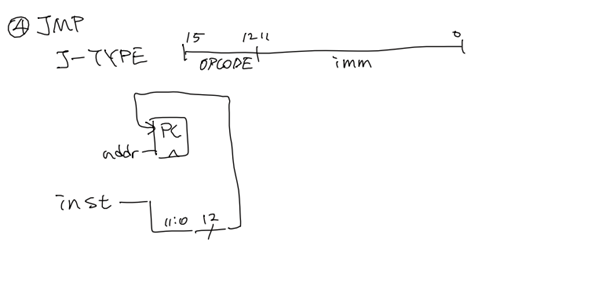 ④ JMP
J-TYPE
15 12 11 0
OPCODE imm
PC
addr
inst
11:0 12